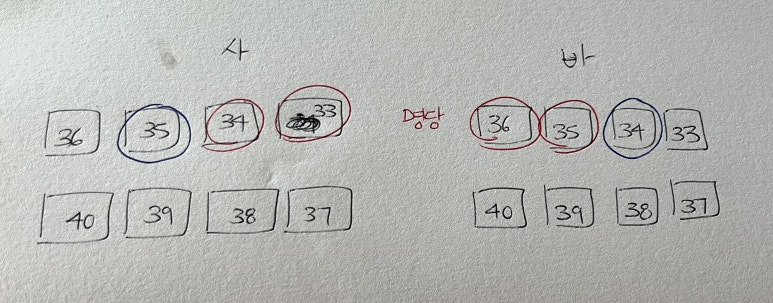 사 바
36 35 34 33 명당 36 35 34 33
40 39 38 37 40 39 38 37